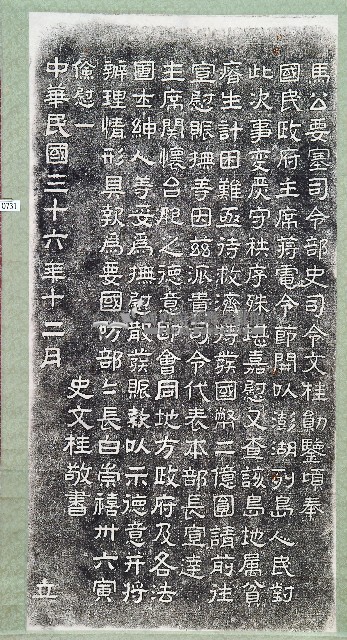 馬公要塞司令部史司令文桂勛鑒頃奉
國民政府主席蔣電令節開以澎湖列島人民對
此次事變疾守秩序殊堪嘉慰又查該島地屬貧
瘠生計困難亟待救濟持發國幣二億圓請前往
宣慰賑撫等因茲派貴司令代表本部長宣達
主席關懷台胞之德意即會同地方政府及各法
團士紳人等妥為撫慰散發賑款以示德意并將
辦理情形具報為要國防部部長白崇禧卅六寅
儉慰一
中華民國三十六年十二月
史文桂敬書
立
0731